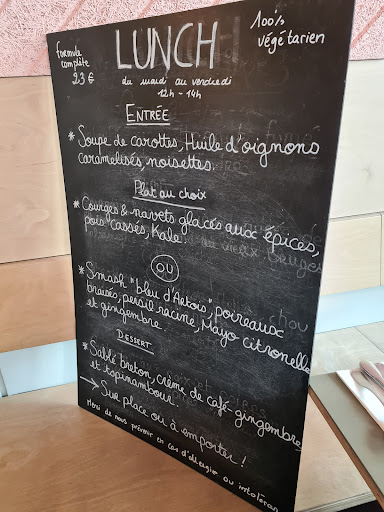 Formule
complète
23 €
LUNCH
100%
végétarien
du mardi au vendredi
12h - 14h
ENTRÉE
* Soupe de carottes, Huile d'oignons
caramelisés, noisettes.
Plat au choix
* Courges & navets glacés aux épices,
pois cassés, Kale.
OU
* Smash "bleu d'Artois", poireaux
braisés, persil racine, Mayo citronelle
et gingembre.
DESSERT
* Sablé breton, crème de café-gingembre
et topinambour.
→ Sur place ou à emporter !
Merci de nous prévenir en cas d'allergie ou intoléran